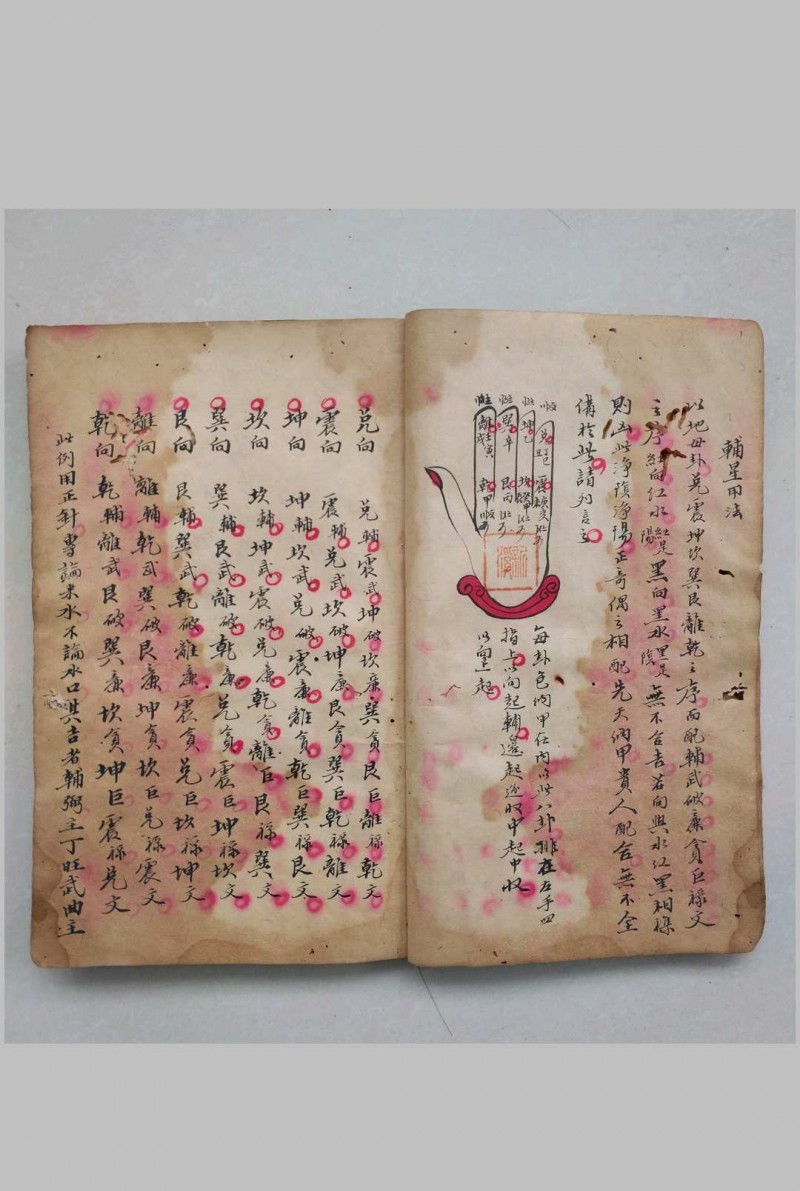 輔星用法
以地母卦兌震坤坎巽艮離乾之序而配輔武破廉貪巨祿文
之序紅向紅水紅是陽黑向黑水黑是陰無不合吉若向與水紅黑相襍
則凶此淨陰淨陽正竒偶之相配先天納甲貴人配合無不全
俻於此請列言之
兌丁巳
震庚亥
坤乙
坎癸甲
巽辛
艮丙
離壬寅戌
乾甲
每卦包納甲在內以此八卦排在左手四
指上以向起輔邊起邊收中起中收
以向上起
兌向 兌輔震武坤破坎廉巽貪艮巨離祿乾文
震向 震輔兌武坎破坤廉艮貪巽巨乾祿離文
坤向 坤輔坎武兌破震廉離貪乾巨巽祿艮文
坎向 坎輔坤武震破兌廉乾貪離巨艮祿巽文
巽向 巽輔艮武離破乾廉兌貪震巨坤祿坎文
艮向 艮輔巽武乾破離廉震貪兌巨坎祿坤文
離向 離輔乾武巽破艮廉坤貪坎巨兌祿震文
乾向 乾輔離武艮破巽廉坎貪坤巨震祿兌文
此例用正針專論來水不論水口其吉者輔弼主丁旺武曲主